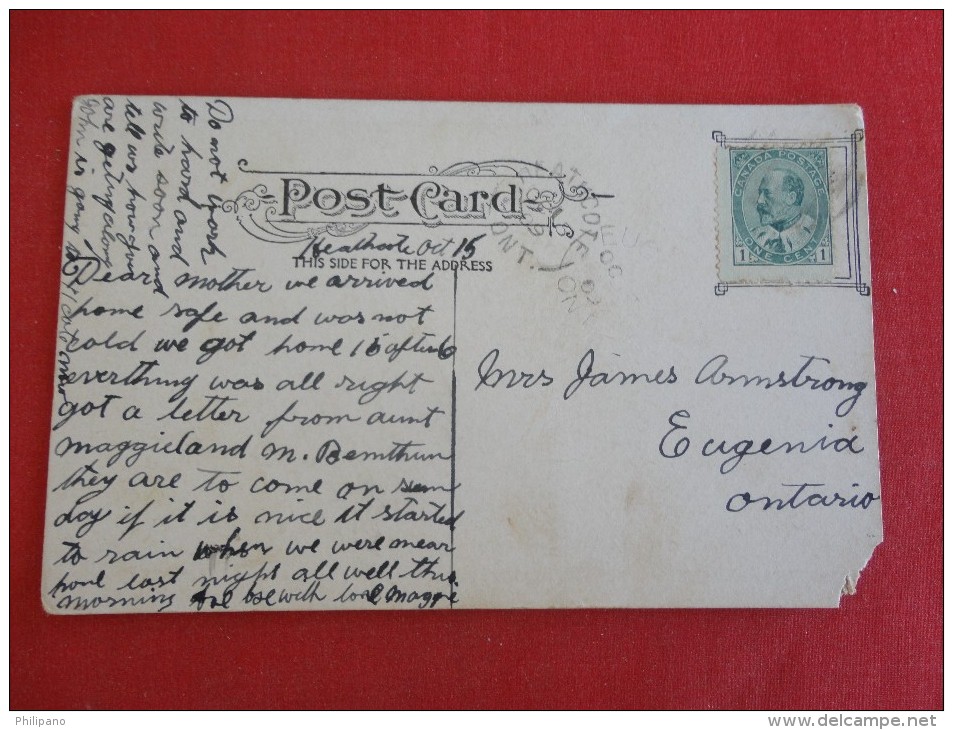 Post Card
THIS SIDE FOR THE ADDRESS
Heathcote Oct 15
Dear mother we arrived
home safe and was not
cold we got home 15 after 6
everthing was all right
got a letter from aunt
maggie and M.
they are to come on sun
day if it is nice it started
to rain when we were near
home last night all well this
morning close with love Maggie
Do not work
to hard and
write soon and
tell us how you
are getting along
John is going to
Mrs James Armstrong
Eugenia
Ontario
CANADA POSTAGE
1 ONE CENT 1
ONT.
ONT
Philipano
www.delcampe.net